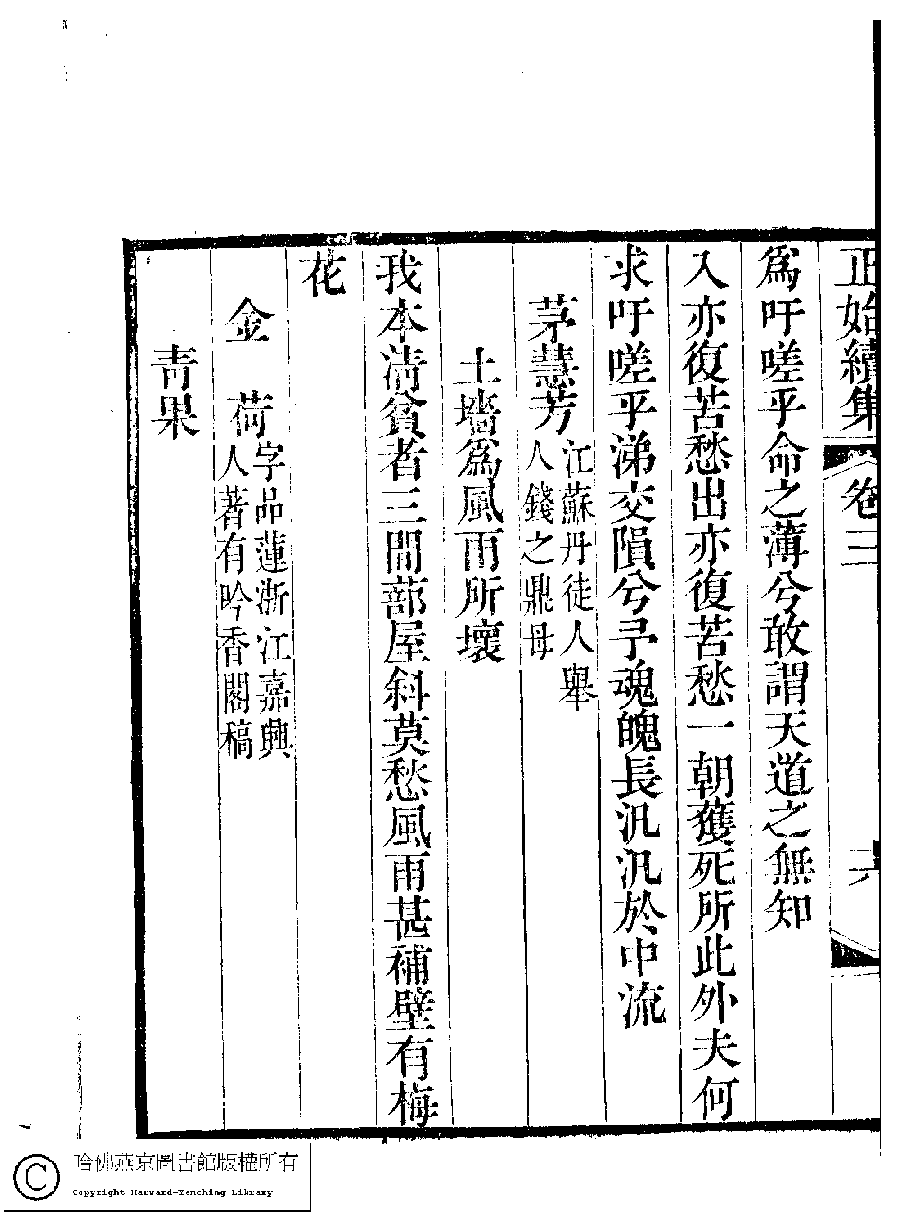 正始續集 卷三
為吁嗟乎命之薄兮敢謂天道之無知
入亦復苦愁出亦復苦愁一朝獲死所此外夫何
求吁嗟乎涕交隕兮予魂魄長汎汎於中流
茅慧芳 江蘇丹徒人舉
人錢之鼎母
土墻爲風雨所壞
我本淸貧者三間蔀屋斜莫愁風雨甚補壁有梅
花
金 荷 字品蓮浙江嘉興
人著有吟香閣稿
靑果
哈佛燕京圖書館版權所有
Copyright Harvard-Yenching Library